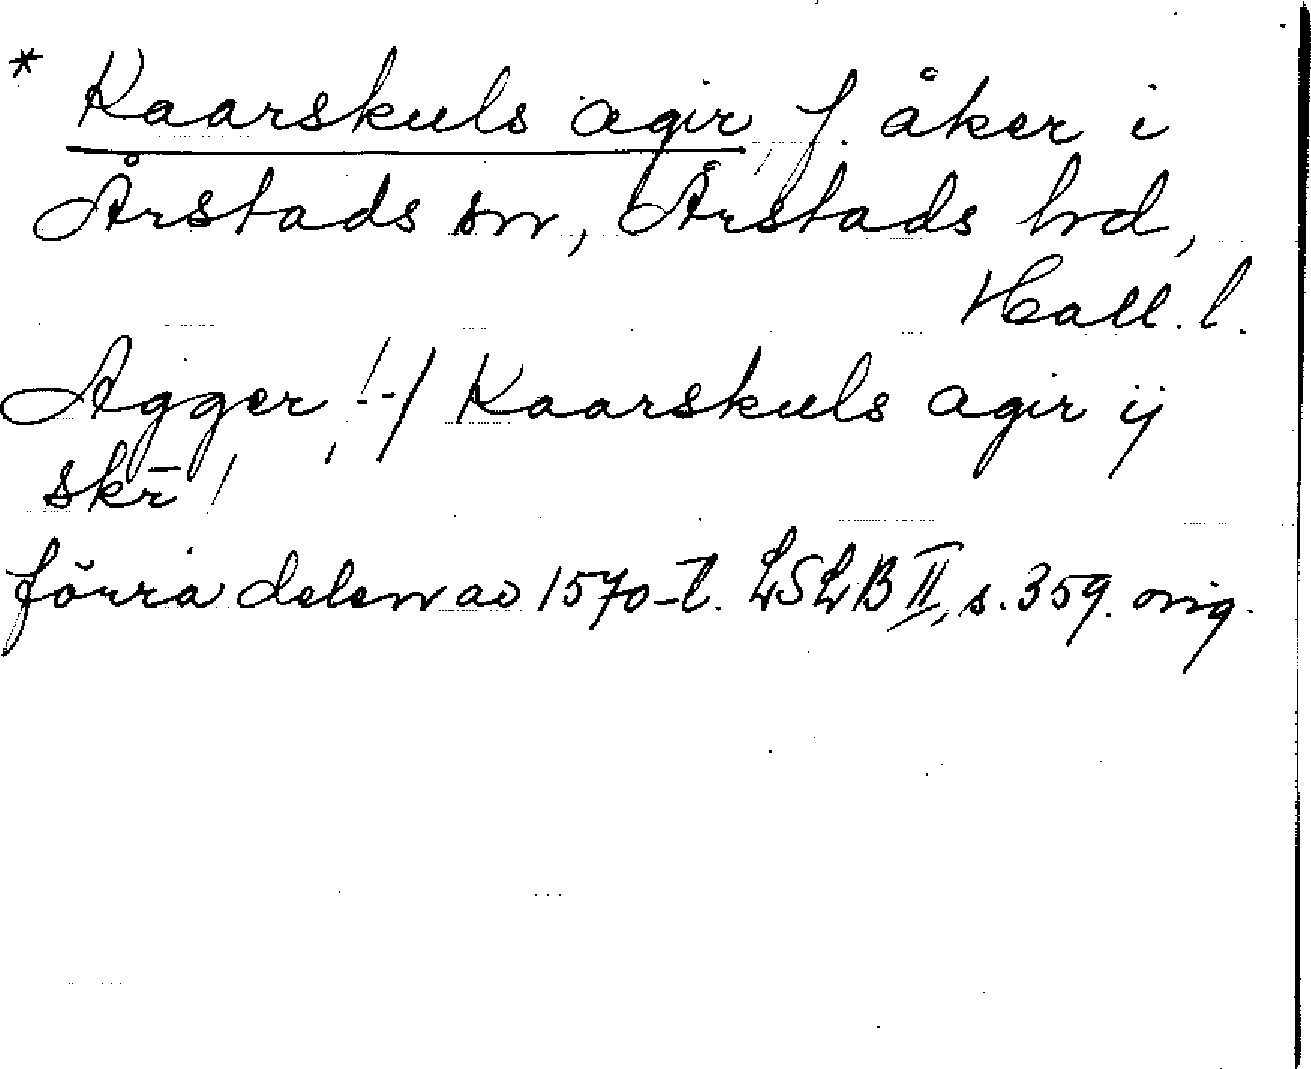 * Kaarskuls agir, f. åker i
Årstads sn, Årstads hd,
Hall. l.
Agger /--/ Kaarskuls agir ij
skr̄ /
förra delen av 1570-t. LSLB II, s. 359. orig.